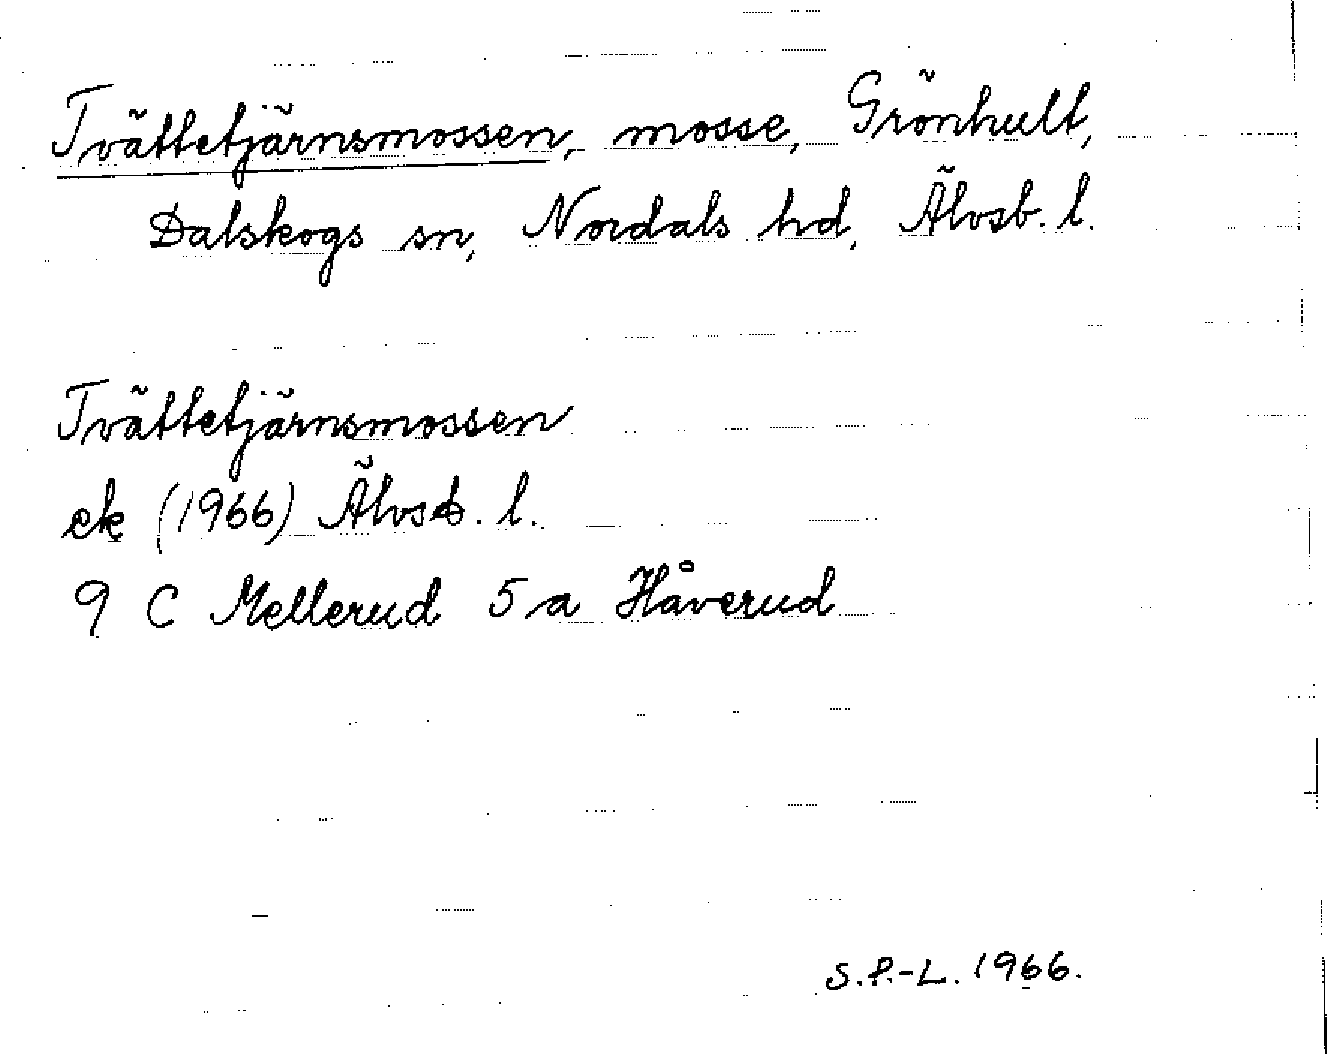 Tvättetjärnsmossen, mosse, Grönhult,
Dalskogs sn, Nordals hd, Älvsb. l.
Tvättetjärnsmossen
ek (1966) Älvsb. l.
9 C Mellerud 5 a Håverud
S.P.-L. 1966.